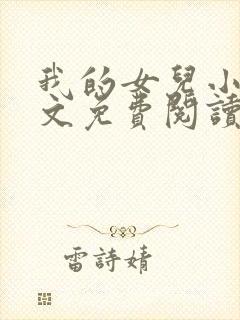 我的女兒小
文免費閱讀
雷詩婧